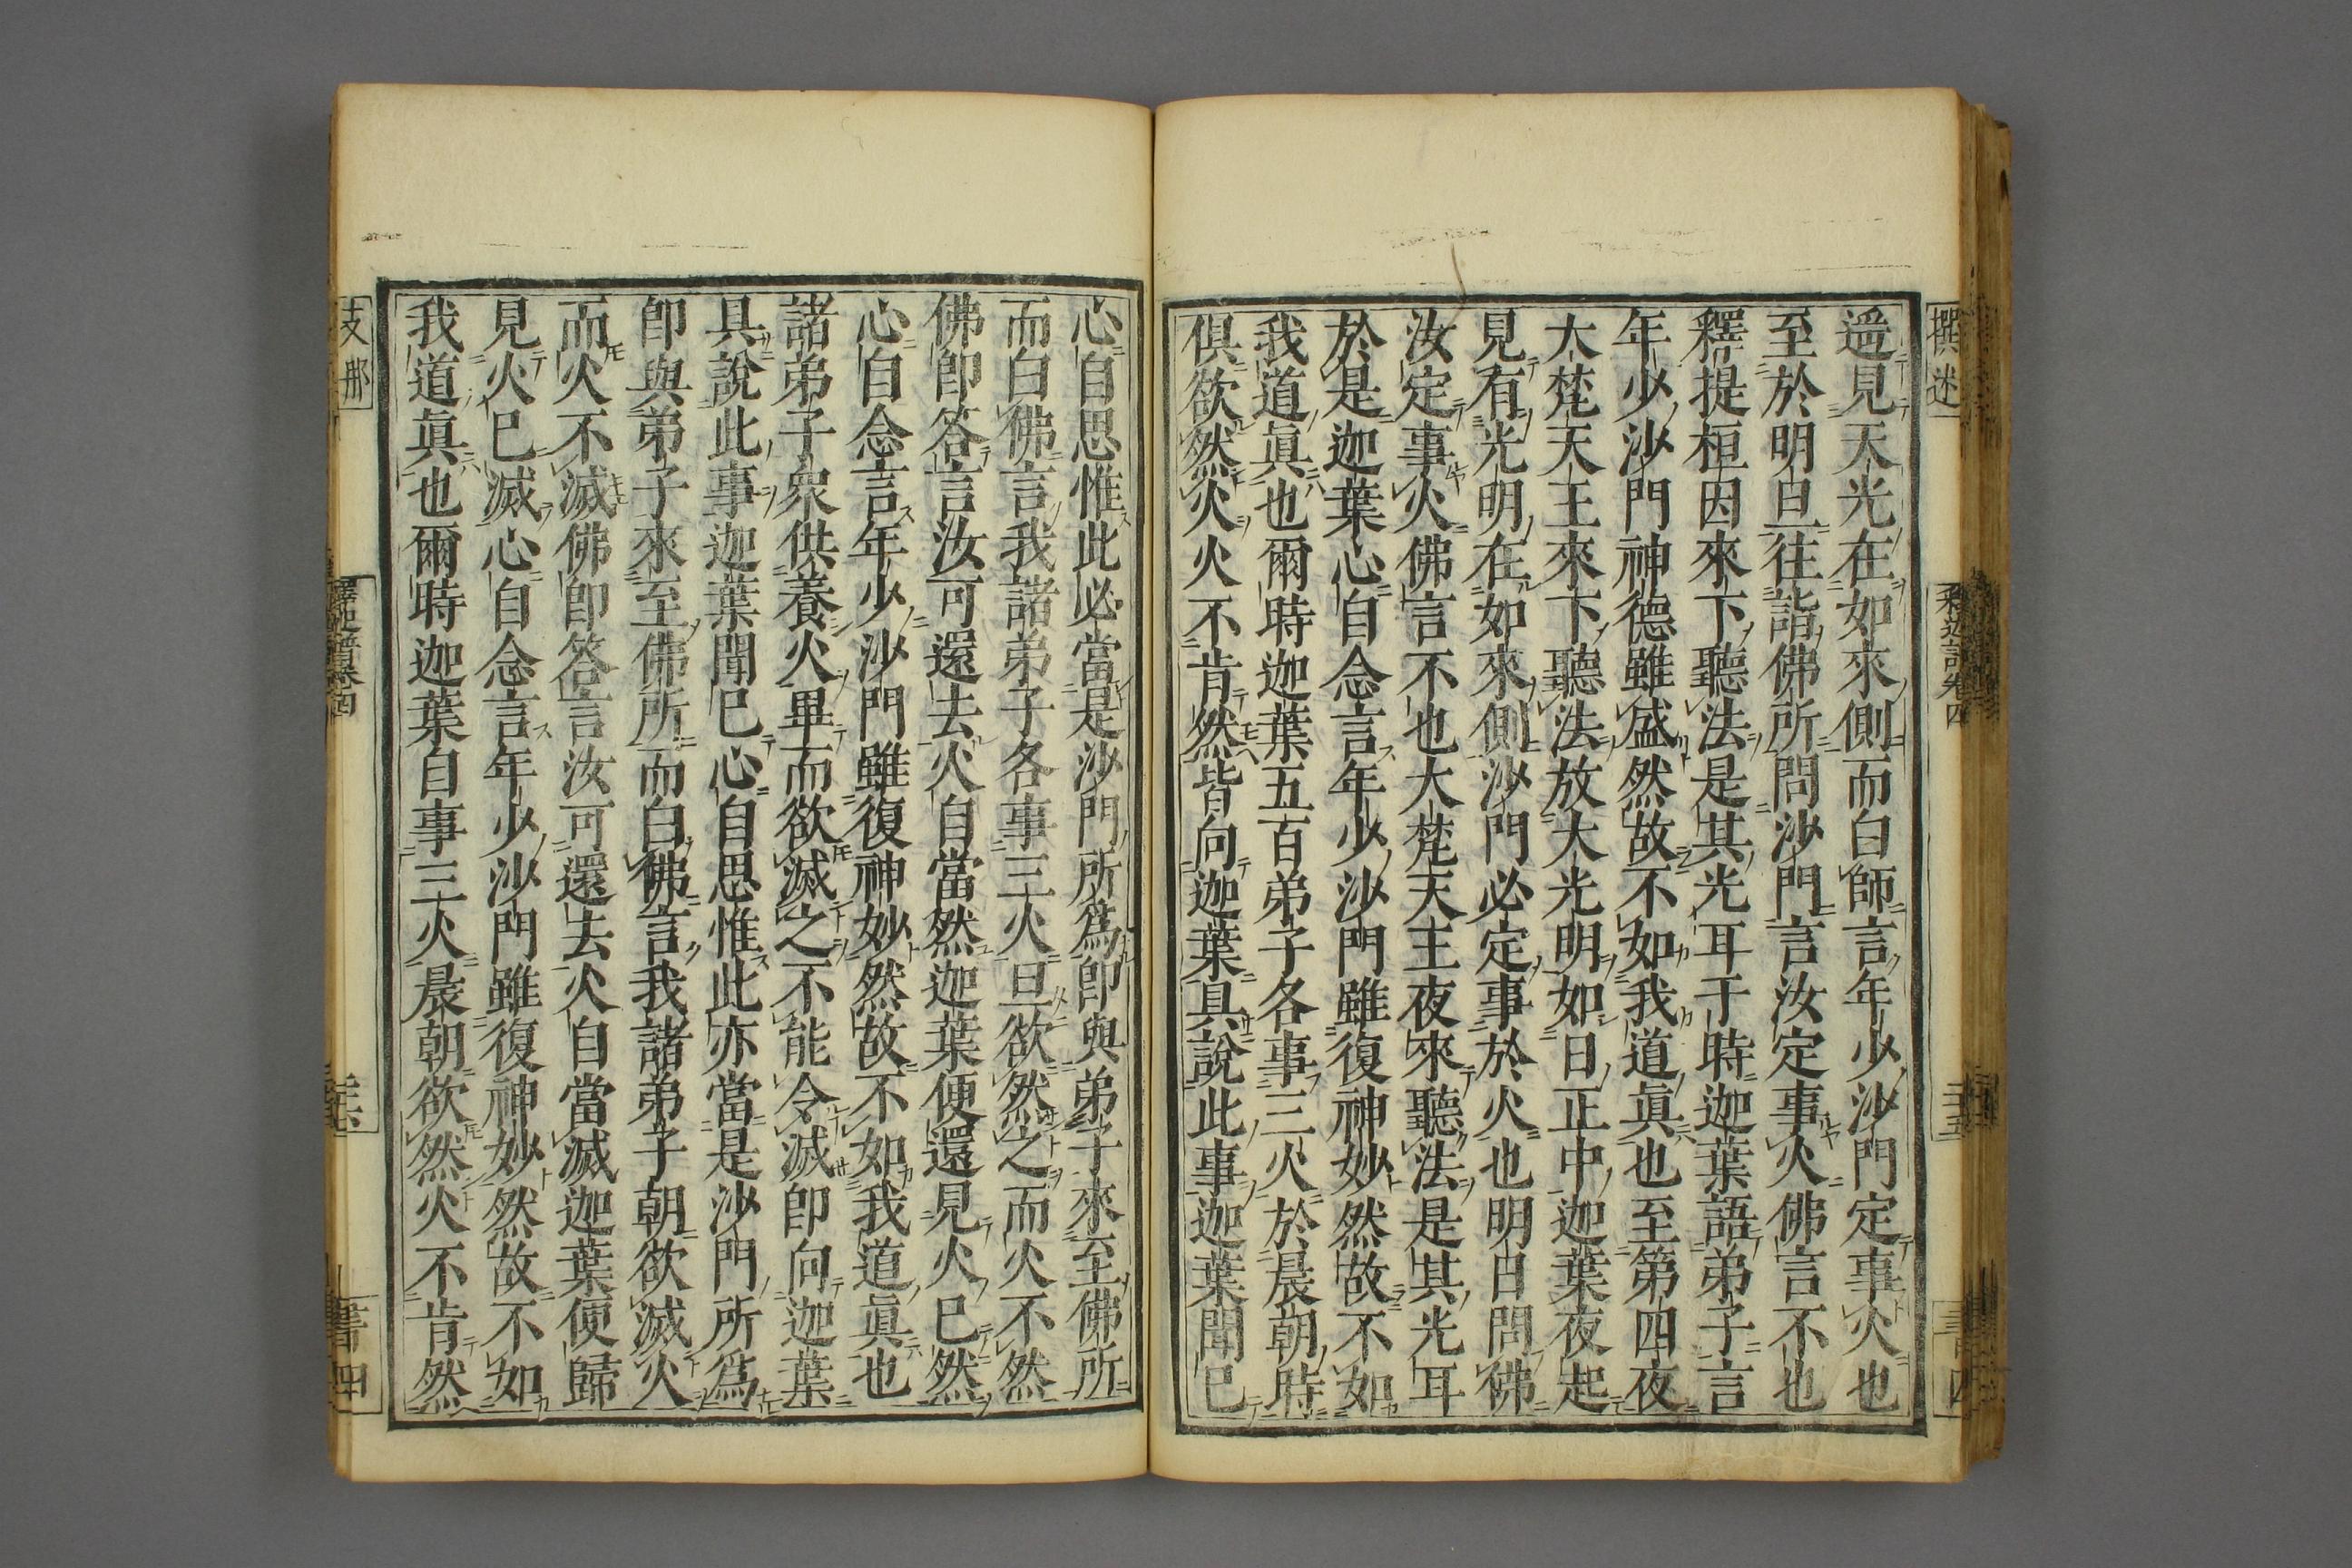 遥見天光在如來側而白師言年少沙門定事火也
至於明旦往詣佛所問沙門言汝定事火佛言不也
釋提桓因來下聽法是其光耳于時迦葉語弟子言
年少沙門神德雖盛然故不如我道眞也至第四夜
大梵天王來下聽法放大光明如日正中迦葉夜起
見有光明在如來側沙門必定事於火也明日問佛
汝定事火佛言不也大梵天王夜來聽法是其光耳
於是迦葉心自念言年少沙門雖復神妙然故不如
我道眞也爾時迦葉五百弟子各事三火於晨朝時
俱欲然火火不肯然皆向迦葉具說此事迦葉聞已
心自思惟此必當是沙門所爲即與弟子來至佛所
而白佛言我諸弟子各事三火旦欲然之而火不然
佛即答言汝可還去火自當然迦葉便還見火已然
心自念言年少沙門雖復神妙然故不如我道眞也
諸弟子衆供養火畢而欲滅之不能令滅即向迦葉
具說此事迦葉聞已心自思惟此亦當是沙門所爲
即與弟子來至佛所而白佛言我諸弟子朝欲滅火
而火不滅佛即答言汝可還去火自當滅迦葉便歸
見火已滅心自念言年少沙門雖復神妙然故不如
我道眞也爾時迦葉自事三火晨朝欲然火不肯然
支那